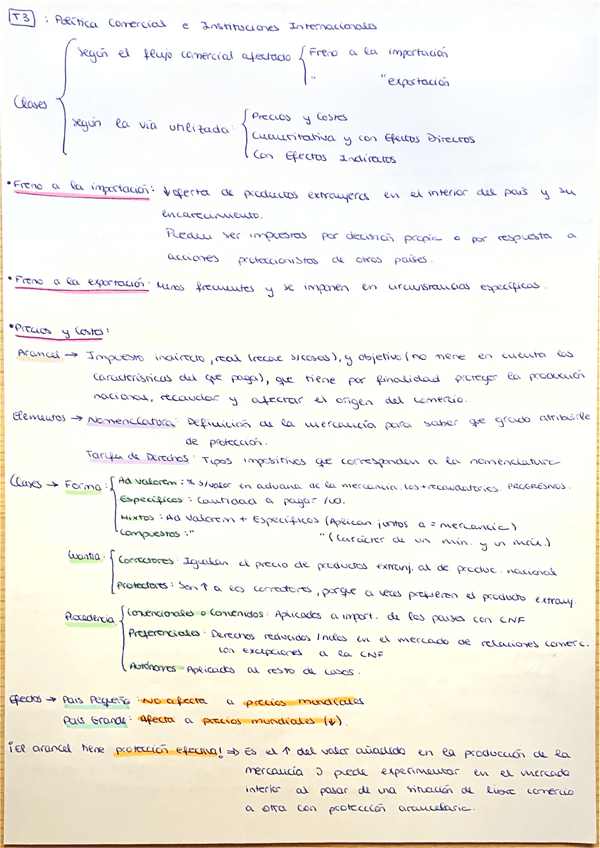 T3 : Política Comercial e Instituciones Internacionales
Clases
según el flujo comercial afectado { Freno a la importación
" " exportación
según la vía utilizada: { Precios y Costes
Cuantitativa y con Efectos Directos
Con Efectos Indirectos
• Freno a la importación: ↓oferta de productos extranjeros en el interior del país y su
encarecimiento.
Pueden ser impuestas por decisión propia o por respuesta a
acciones proteccionistas de otros países.
• Freno a la exportación: Menos frecuentes y se imponen en circunstancias específicas.
• Precios y Costes:
Arancel → Impuesto indirecto, real (recae s/cosas), y objetivo (no tiene en cuenta las
características del que paga), que tiene por finalidad proteger la producción
nacional, recaudar y afectar el origen del comercio.
Elementos → Nomenclatura: Definición de la mercancía para saber que grado atribuirle
de protección.
Tarifa de Derechos: Tipos impositivos que corresponden a la nomenclatura
Clases → Forma: { Ad Valorem: % s/valor en aduana de la mercancía. Los + recaudatorios. PROGRESIVOS.
Específicos: Cantidad a pagar /ud.
Mixtos: Ad Valorem + Específicos (Aplican juntos a = mercancía)
Compuestos: " " (Carácter de un mín. y un máx.)
Cuantía: { Correctores: Igualan el precio de productos extranj. al de produc. nacional
Protectores: Son ↑ a los correctores, porque a veces prefieren el producto extranj.
Procedencia { Convencionales o Convenidos: Aplicados a import. de los países con CNF
Preferenciales: Derechos reducidos/nulos en el mercado de relaciones comerc.
con excepciones a la CNF
Autónomos: Aplicados al resto de casos.
Efectos → País Pequeño: No afecta a precios mundiales
País Grande: Afecta a precios mundiales (↓).
¡El arancel tiene protección efectiva! ⇒ Es el ↑ del valor añadido en la producción de la
mercancía q puede experimentar en el mercado
interior al pasar de una situación de libre comercio
a otra con protección arancelaria.